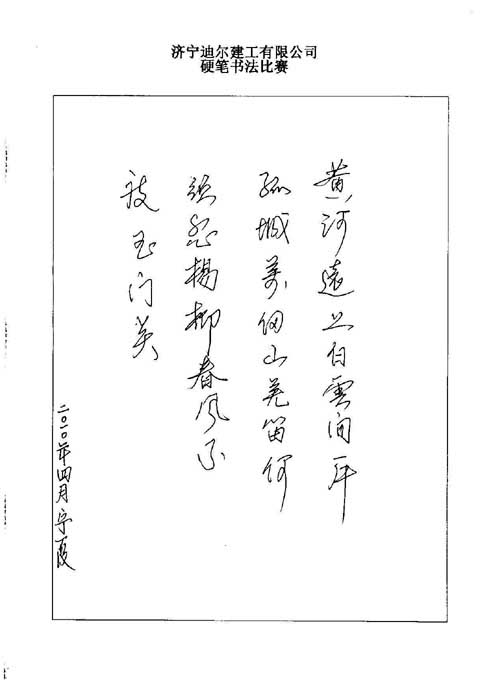 济宁迪尔建工有限公司
硬笔书法比赛
黄河遠上白雲间一片
孤城萬仞山羌笛何
须怨楊柳春風不
度玉门关
二〇一〇年四月宁